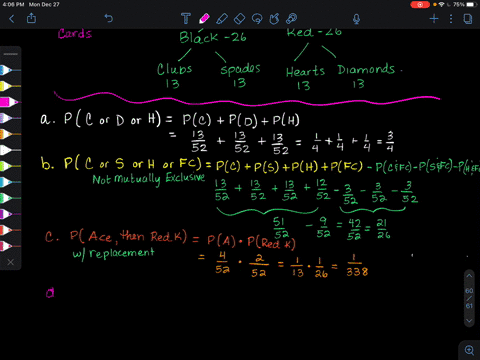 4:06 PM Mon Dec 27
75%
Cards
Black - 26 Red - 26
Clubs Spades Hearts Diamonds
13 13 13 13
a. P( C or D or H) = P(C) + P(D) + P(H)
= 13/52 + 13/52 + 13/52 = 1/4 + 1/4 + 1/4 = 3/4
b. P( C or S or H or FC) = P(C) + P(S) + P(H) + P(FC) - P(C&FC) - P(S&FC) - P(H&FC)
Not mutually Exclusive
13/52 + 13/52 + 13/52 + 12/52 - 3/52 - 3/52 - 3/52
51/52 - 9/52 = 42/52 = 21/26
c. P( Ace, then Red K) = P(A) · P(Red K)
w/ replacement = 4/52 · 2/52 = 1/13 · 1/26 = 1/338
d
60
61